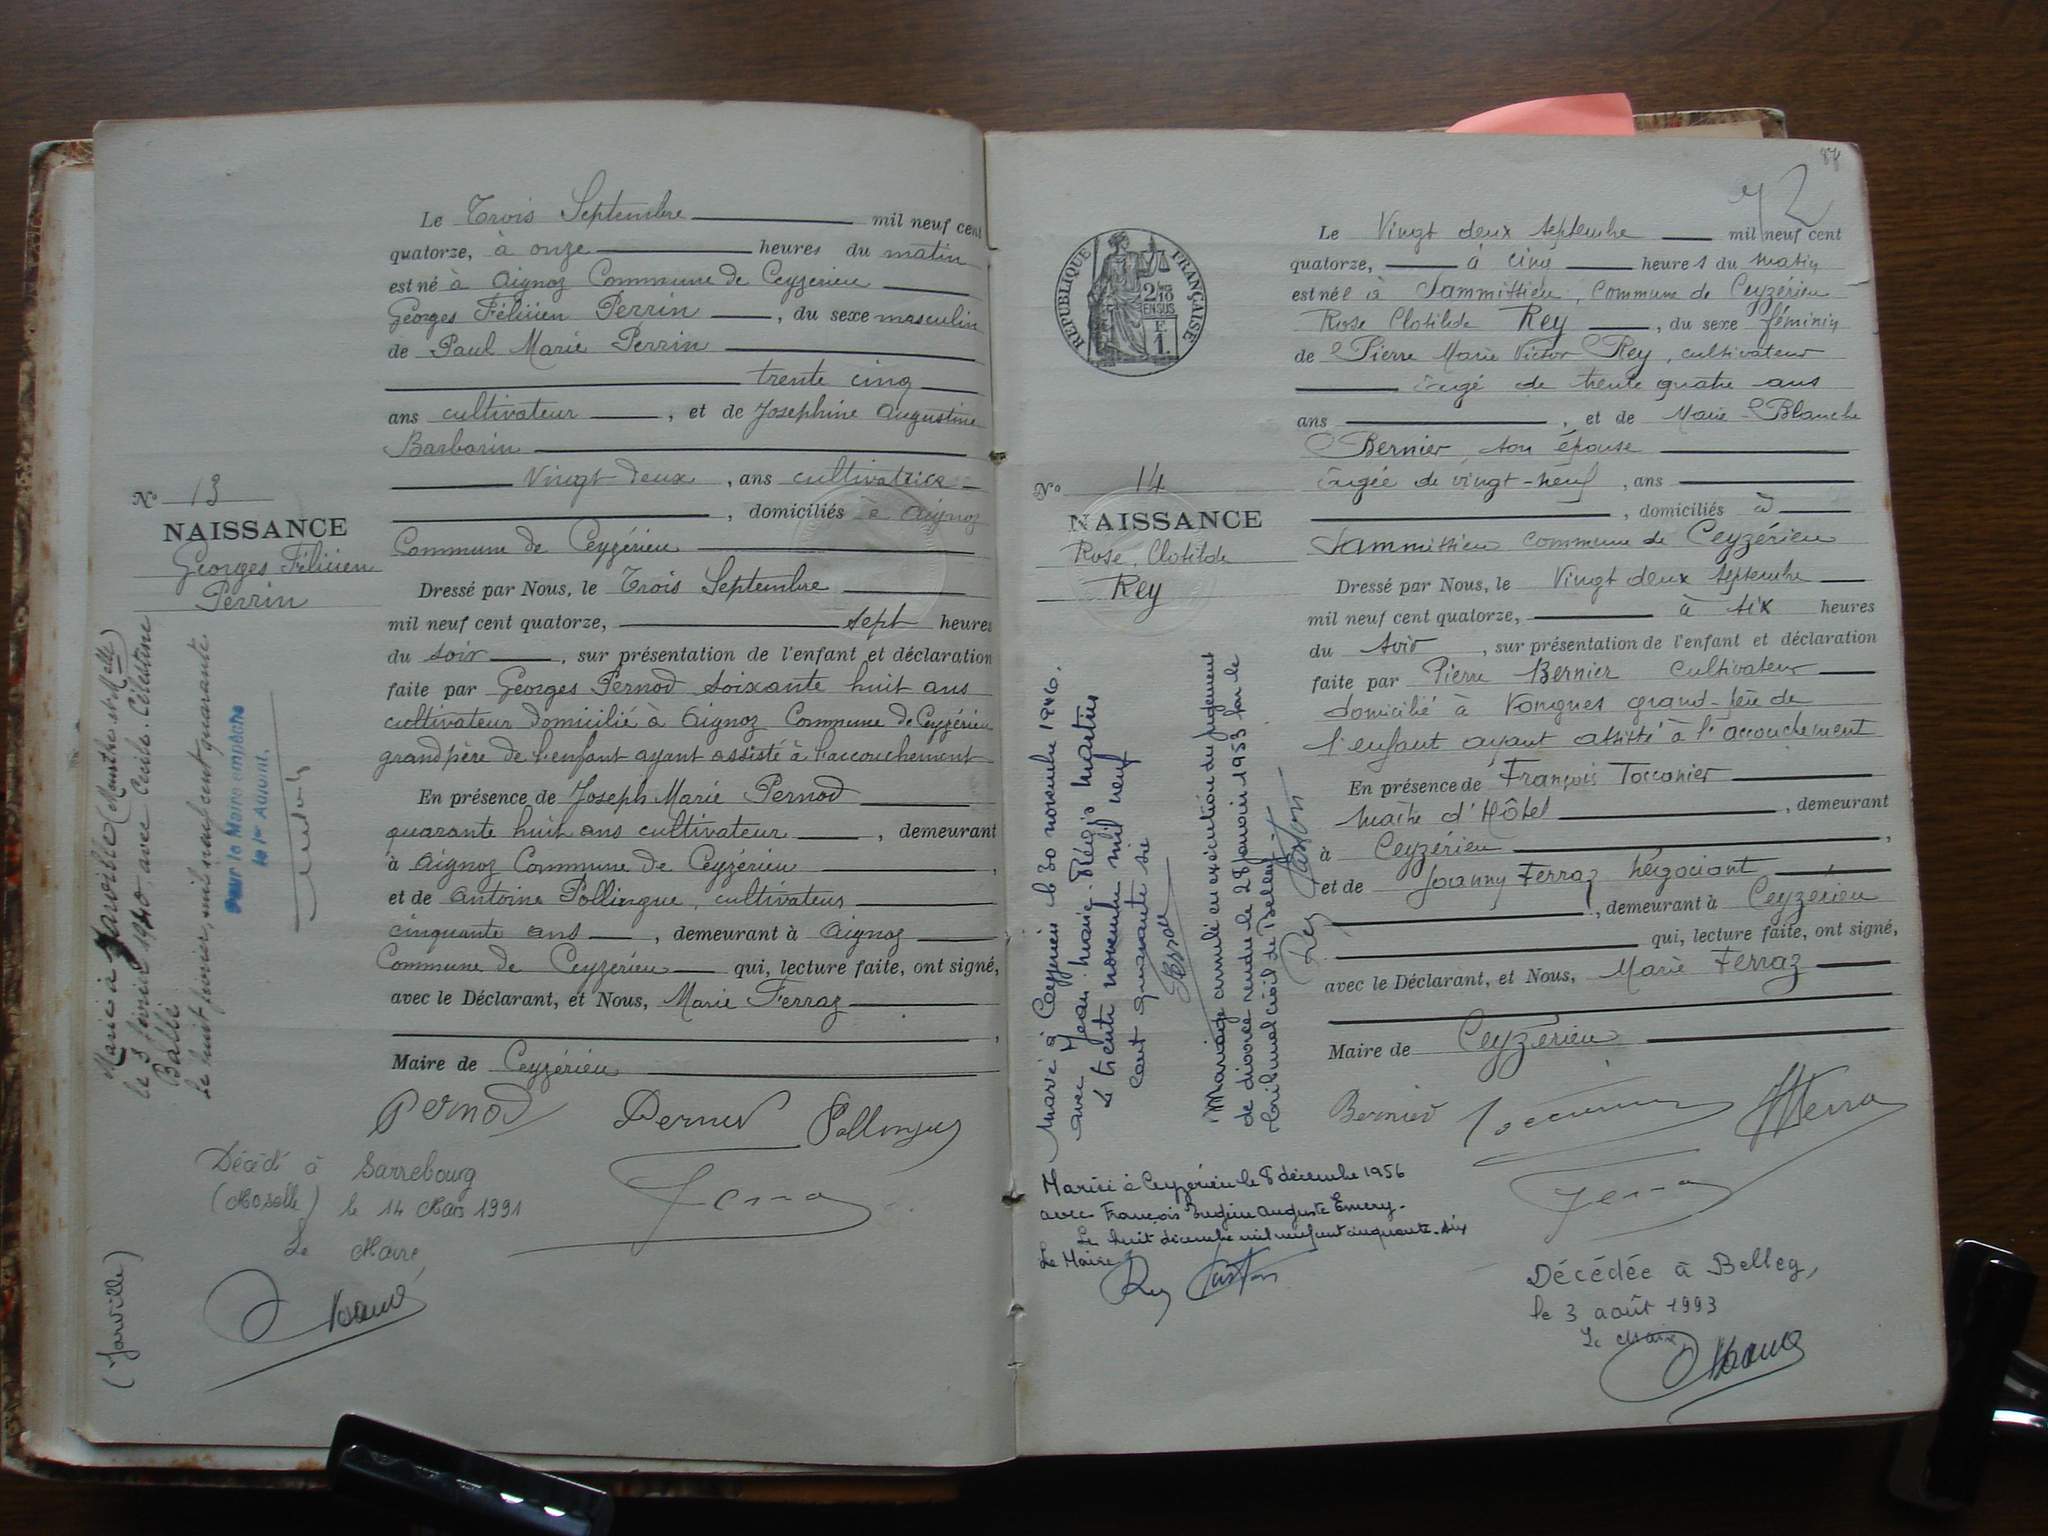 Le Trois Septembre mil neuf cent
quatorze, à onze heures du matin
est né à Aignoz Commune de Ceyzérieu
Georges Félicien Perrin, du sexe masculin
de Paul Marie Perrin
trente cinq
ans cultivateur, et de Joséphine Augustine
Barbarin
Vingt deux, ans cultivatrice
, domiciliés à Aignoz
Commune de Ceyzérieu
Dressé par Nous, le Trois Septembre
mil neuf cent quatorze, sept heures
du soir, sur présentation de l'enfant et déclaration
faite par Georges Pernod soixante huit ans
cultivateur domicilié à Aignoz Commune de Ceyzérieu
grand père de l'enfant ayant assisté à l'accouchement
En présence de Joseph Marie Pernod
quarante huit ans cultivateur, demeurant
à Aignoz Commune de Ceyzérieu,
et de Antoine Pollingue, cultivateur
cinquante ans, demeurant à Aignoz
Commune de Ceyzérieu qui, lecture faite, ont signé,
avec le Déclarant, et Nous, Marie Ferraz
,
Maire de Ceyzérieu
Pernod Pernod Pollingue
Ferra
No 13
NAISSANCE
Georges Félicien
Perrin
Marié à Jarville (Meurthe & Mlle)
le 3 février 1940, avec Cécile Célestine
Balli
Le huit février, mil neuf cent quarante
Pour le Maire empêché
le 1er Adjoint,
Décédé à Sarrebourg
(Moselle) le 14 Mars 1991
Le Maire,
(Jarville)
87
72
REPUBLIQUE FRANÇAISE
2/10 EN SUS
Le Vingt deux septembre mil neuf cent
quatorze, à cinq heures du matin
est née à Sammissieu, Commune de Ceyzérieu
Rose Clotilde Rey, du sexe féminin
de Pierre Marie Victor Rey, cultivateur
âgé de trente quatre ans
ans, et de Marie Blanche
Bernier, son épouse
âgée de vingt-neuf, ans
, domiciliés à
Sammissieu commune de Ceyzérieu
Dressé par Nous, le Vingt deux septembre
mil neuf cent quatorze, à six heures
du soir, sur présentation de l'enfant et déclaration
faite par Pierre Bernier cultivateur
domicilié à Vongnes grand-père de
l'enfant ayant assisté à l'accouchement
En présence de François Toccanier
maître d'Hôtel, demeurant
à Ceyzérieu,
et de Joanny Ferraz négociant
, demeurant à Ceyzérieu
qui, lecture faite, ont signé,
avec le Déclarant, et Nous, Marie Ferraz
Maire de Ceyzérieu
Bernier Toccanier Ferra
Ferra
No 14
NAISSANCE
Rose, Clotilde
Rey
Marié à Ceyzérieu le 30 novembre 1946.
avec Jean-Marie-Régis Martin
Le trente novembre mil neuf
cent quarante six
Mariage annulé en exécution du jugement
de divorce rendu le 28 janvier 1953 par le
tribunal civil de Belley
Rey Gaston
Mariée à Ceyzérieu le 8 décembre 1956
avec François Eugène Auguste Emery.
Le huit décembre mil neuf cent cinquante-six
Le Maire
Rey Gaston
Décédée à Belley,
le 3 août 1993
Le Maire,